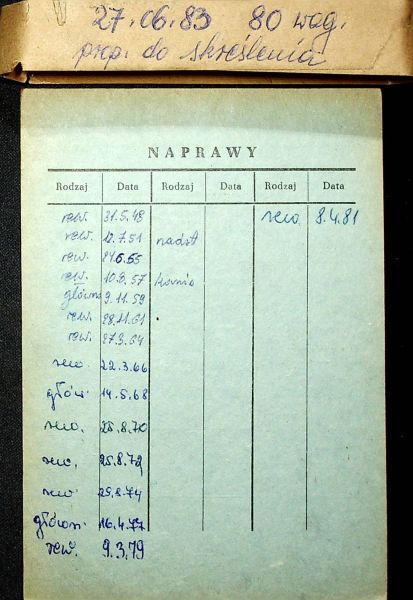 27.06.83 80 wag.
prop. do skreślenia
NAPRAWY
Rodzaj Data Rodzaj Data Rodzaj Data
rew. 31.5.48 rew. 8.4.81
rew. 12.7.51
rew. 24.6.55
rew. 10.8.57
główna 9.11.59
rew. 28.11.61
rew. 27.3.64
rew. 22.3.66
głów. 14.5.68
rew. 25.8.70
rew. 25.8.72
rew. 29.8.74
główn. 16.4.77
rew. 9.3.79